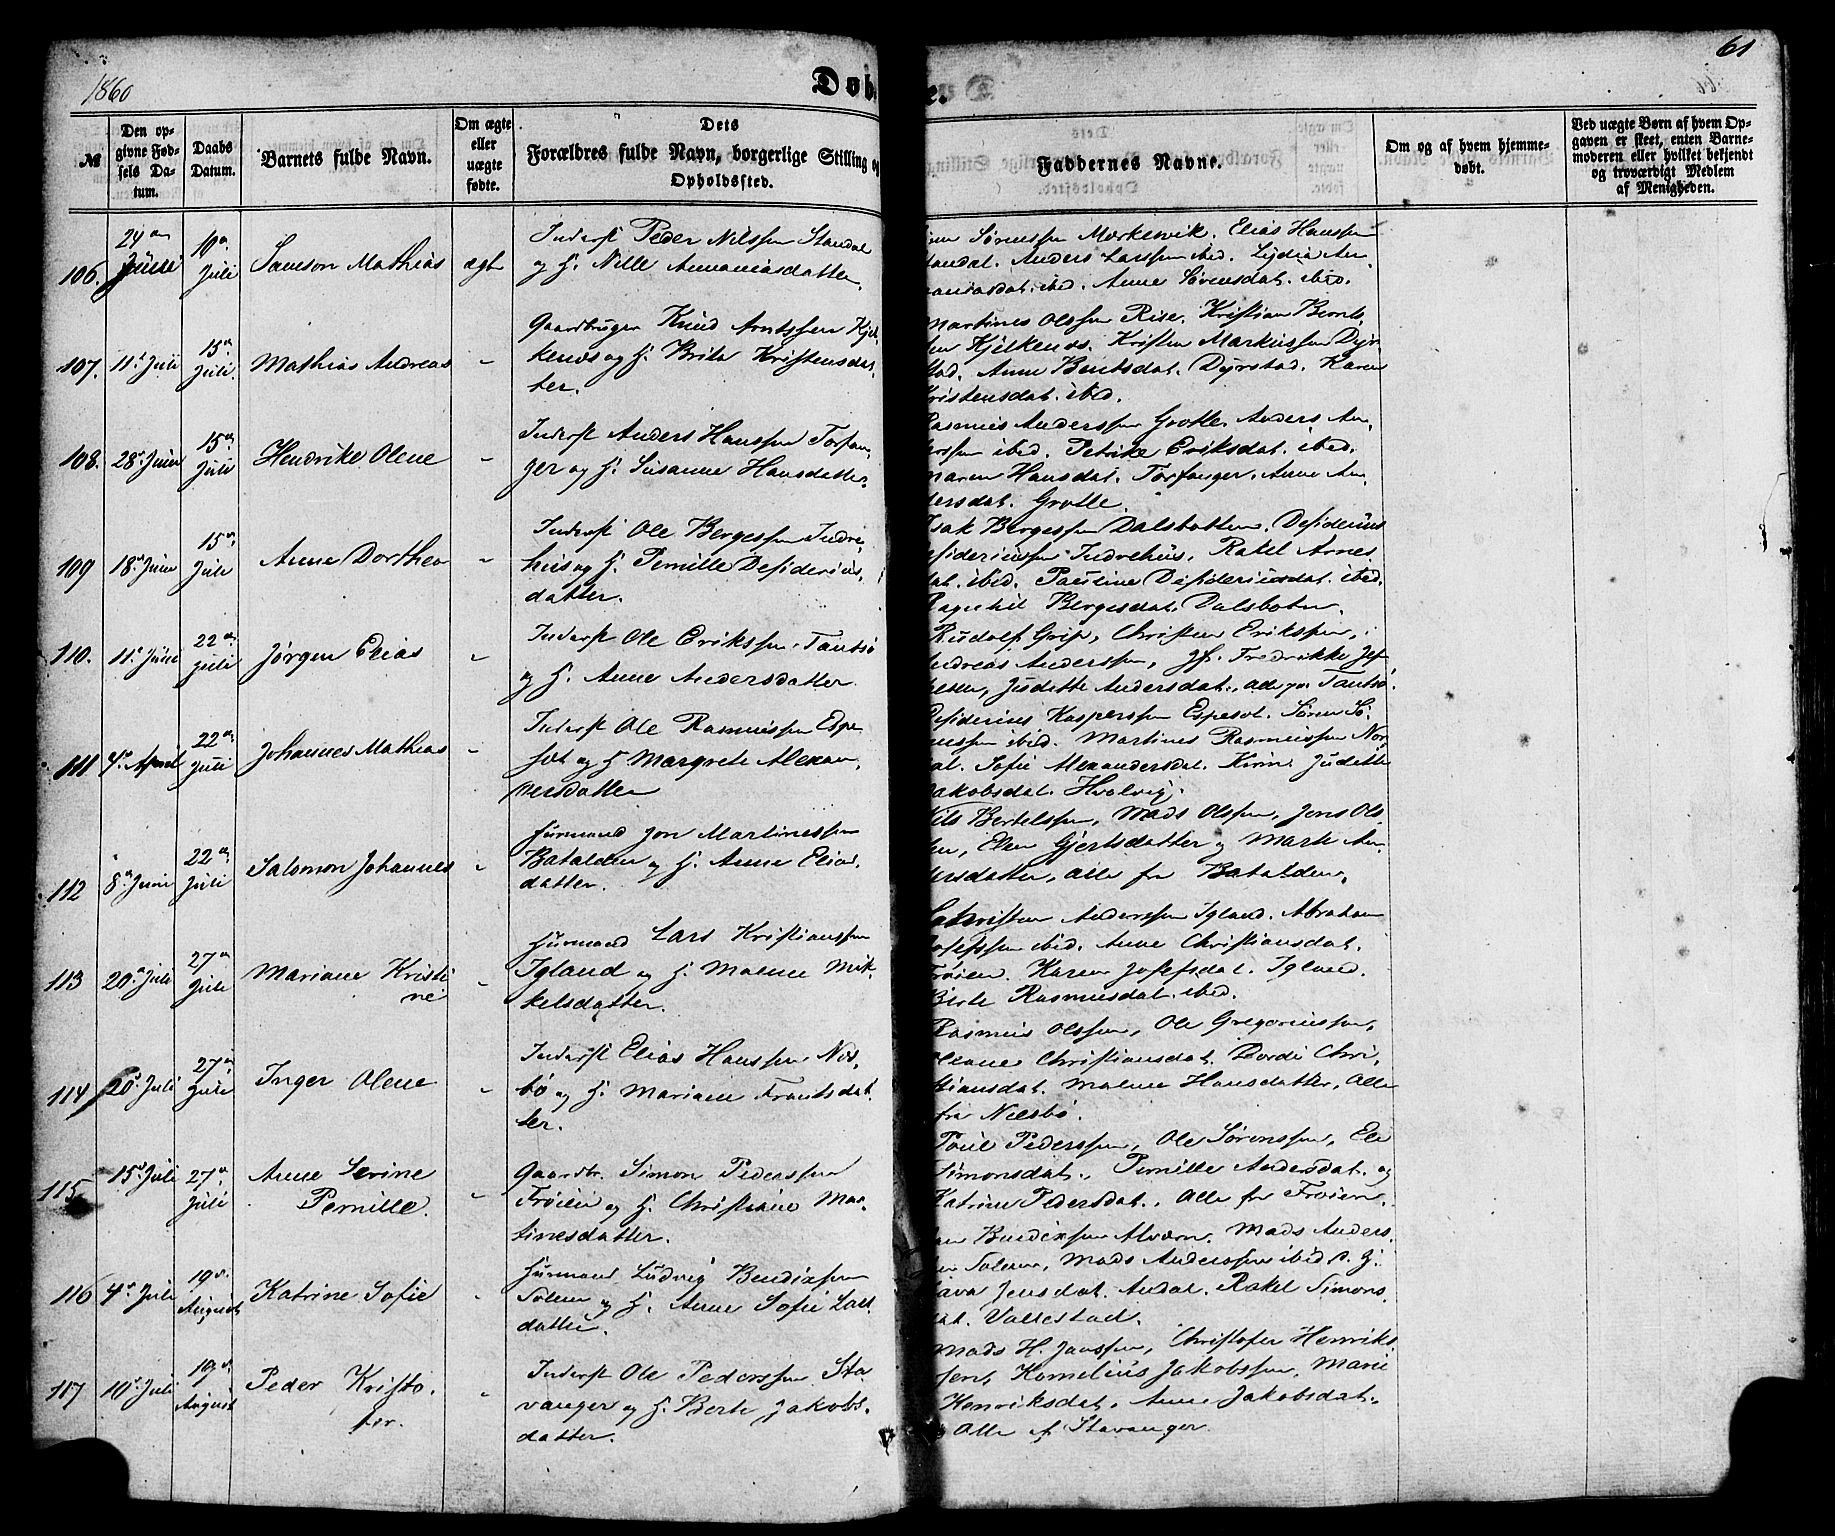 1860
Døb
e.
61
№
Den op-
givne Fød-
sels Da-
tum.
Daabs
Datum.
Barnets fulde Navn.
Om ægte
eller
uægte
fødte.
Dets
Forældres fulde Navn, borgerlige Stilling og
Opholdssted.
Faddernes Navne.
Om og af hvem hjemme-
døbt.
Ved uægte Børn af hvem Op-
gaven er skeet, enten Barne-
moderen eller hvilket bekjendt
og troværdigt Medlem
af Menigheden.
106. 24de Juni 10de Juli Samson Mathias ægt
Inderst Peder Nilssen Standal
og H. Nille Annaniasdatter.
Sørenssen Morkesvik. Elias Hanssen
tandal. Anders Larssen ibid. Lydia An-
aniasdat. ibid. Anne Sørensdat. ibid.
107. 11te Juli 15de Juli. Mathias Andreas -
Gaardbruger Knud Arntssen Kjel-
kenes og H. Brite Kristensdat-
ter.
Martines Olssen Rise. Kristian Bernts-
sen Kjelkenes. Kristen Markussen Dyr-
stad. Anne Berntsdat. Dyrstad. Karen
Kristensdat. ibid.
108. 28de Juni 15de Juli Hendrike Olene -
Inderst Anders Hanssen Torfan-
ger og H. Susanne Hansdatter.
Rasmus Anderssen Grotle. Anders An-
derssen ibid. Petrike Eriksdat. ibid.
Maren Hansdat. Torfanger. Anne An-
dersdat. Grotle.
109 18de Juni 15de Juli Anne Dorthea -
Inderst Ole Bergessen Indre-
hus og H. Pernille Desiderius-
datter.
Isak Bergessen Dalsbotten. Desiderius
esideriussen Indrehus. Rakel Arnes
dat. ibid. Pauline Desideriusdat. ibid.
Ragnhil Bergesdat. Dalsboten.
110. 11te Juni 22de Juli Jørgen Elias -
Inderst Ole Erikssen Tansø
og H. Anne Andersdatter
Rudolf Grip, Christen Erikssen,
Andreas Anderssen, Jf. Fredrikke Jes-
sen, Judette Andersdat., Alle paa Tansø.
111 4de April 22de Juli Johannes Mathias -
Inderst Ole Rasmussen Espe-
set og H Margrete Alexan-
dersdatter
Desiderius Kasperssen Espeset. Søren Sø-
renssen ibid. Martines Rasmussen Nor-
dal. Sofie Alexandersdat. Kinn. Judette
Jakobsdat. Hvalvig.
112 8de Juni 22de Juli Salomon Johannes -
Husmand Jon Martinussen
Batalden og H. Anne Elias-
datter.
Nils Bertelssen, Mads Olssen, Jens Ols-
sen, Elen Gjertsdatter og Marte An-
dersdatter, alle fra Batalden.
113 20de Juli 27de Juli Mariane Kristi
ne -
Husmand Lars Kristianssen
Igland og H. Malene Mik-
kelsdatter.
Christen Anderssen Igland. Abraham
Josefssen ibid. Anne Christiansdat.
Frøien. Karen Josefsdat. Igland.
Birte Rasmusdat. ibid.
114 20de Juli 27de Juli Inger Olene -
Inderst Elias Hanssen Nes-
bø og H. Mariane Frantsdat-
ter.
Rasmus Olssen, Ole Gregoriussen,
Oleane Christiansdat. Dordi Chri-
stiansdat. Malene Hansdatter, Alle
fra Nesbø.
115 15de Juli 27de Juli Anne Serine
Pernille. -
Gaardbr. Simon Pederssen
Frøien og H. Christiane Mar-
tinesdatter.
Poul Pederssen, Ole Sørenssen, Eli
Simonsdat., Pernille Andersdat. og
Katrine Pedersdat., Alle fra Frøien.
116 4de Juli 19de August Katrine Sofie -
Husmand Ludvig Bendixsen
Solem og H. Anne Sofie Lars-
datter.
Bendixsen Alværn. Mads Anders-
sen Solem, Mads Anderssen ibid
Jensdat. Andal. Rakel Simons-
dat. Vallestad.
117 10de Juli 19de August Peder Kristo-
fer. -
Inderst Ole Pederssen Sta-
vanger og H. Berte Jakobs-
datter.
Mads H. Janssen, Christofer Henriks
sen, Kornelius Jakobssen, Marie
Henriksdat. Anne Jakobsdat.
Alle af Stavanger